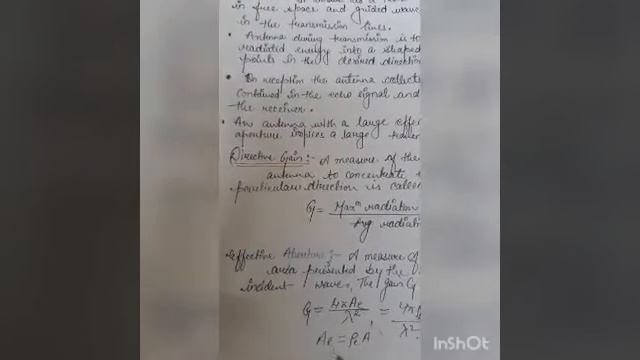 in free space and guided wave
in the transmission lines.
• Antenna during transmission is to
radiated energy into a shaped
points in the desired direction
• On reception the antenna collects
contained in the echo signal and
the receiver.
• An antenna with a large effec
aperture implies a large
Directive Gain:- A measure of the
antenna to concentrate
particular direction is called
G = Maxᵐ radiation
Avg radiati
Effective Aperture:- A measure of
area presented by the
incident waves, The gain G
G = 4πAe / λ² = 4π / λ²
Ae = ρₐA
InShOt